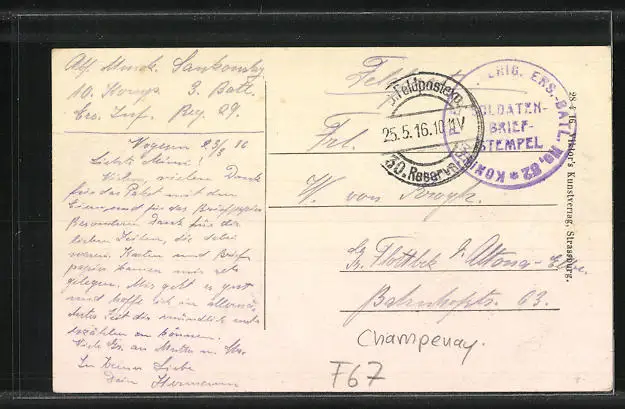 Alf. Musk. Sankowsky
10. Komp. 3. Batl.
Ers. Inf. Reg. 29.
Feldpost
Frl.
W. von
Gr. Flottbek b. Altona-Elbe.
Bahnhofstr. 63.
Feldpostexp.
25.5.16.10-11V
30. Reserve
ERS.-BATL. No. 82 * KÖNI
SOLDATEN-
BRIEF-
STEMPEL
28 4 16. Viktor's Kunstverlag, Strassburg.
23/5 16
Liebste Minni!
Vielen, vielen Dank
für das Paket mit den
und für das Briefpapier
Besonderen Dank für die
lieben Zeilen, die
waren. Karten und Brief
papier kamen mir sehr
gelegen. Mir geht es gut
und hoffe ich in
Zeit dir mündlich mehr
erzählen zu können.
Viele Gr. an Mutter u.
In treuer Liebe
Dein Hermann
Champenay.
F67